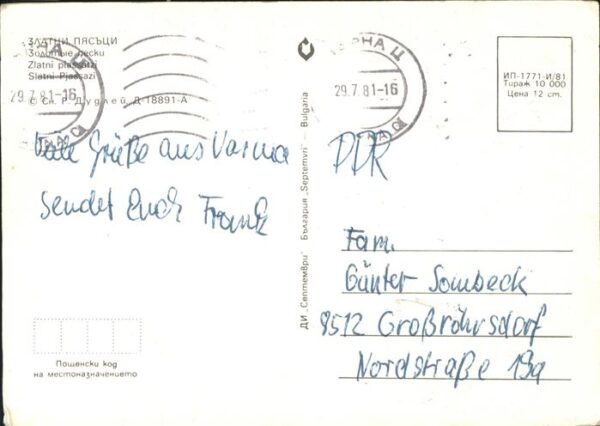 ЗЛАТНИ ПЯСЪЦИ
Золотые пески
Zlatni piassatzi
Slatni Pjassazi
29.7.81-16
© Сн. Р. Дудлей, Д 18891-А
Viele Grüße aus Varna
sendet Euch Frank
Пощенски код
на местоназначението
ДИ „Септември" България „Septemvri" — Bulgaria
ВАРНА Ц
29.7.81-16
ИП-1771-И/81
Тираж 10 000
Цена 12 ст.
DDR
Fam.
Günter Sombeck
8512 Großröhrsdorf
Nordstraße 19a